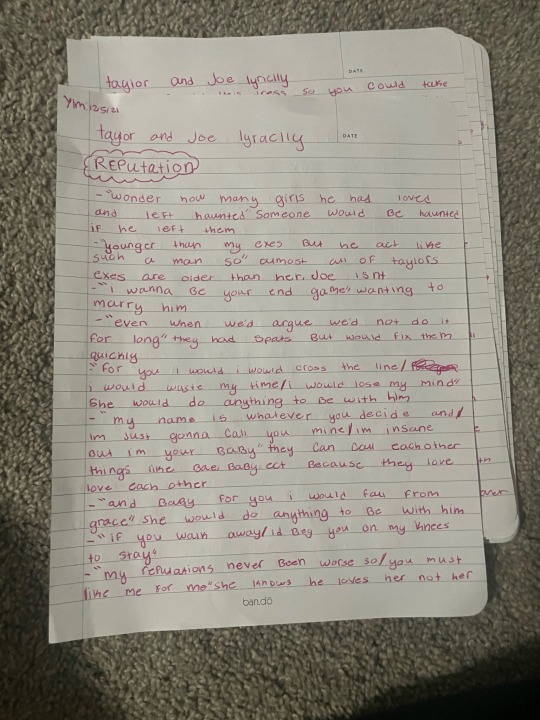 taylor and Joe lyriclly
DATE
so you could take
YIM 12/5/21
tayor and Joe lyraclly
DATE
REPUTATION
-"wonder how many girls he had loved
and left haunted" Someone would be haunted
if he left them
-"younger than my exes But he act like
such a man so" aumost all of taylors
exes are older than her. Joe isnt
-"i wanna Be your end game" wanting to
marry him
-"even when we'd argue we'd not do it
for long" they had spats But would fix them
quickly
"for you i would i would cross the line/
i would waste my time/i would lose my mind"
She would do anything to be with him
-"my name is whatever you decide and/
im just gonna call you mine/im insane
But im your BaBy" they can call eachother
things like Bae, BaBy ect Because they love
love each other
-"and BaBy for you i would fall from
grace" she would do anything to Be with him
-"if you walk away/id Beg you on my knees
to stay"
-"my reputations never Been worse so/you must
like me for me" she knows he loves her not her
ban.dō